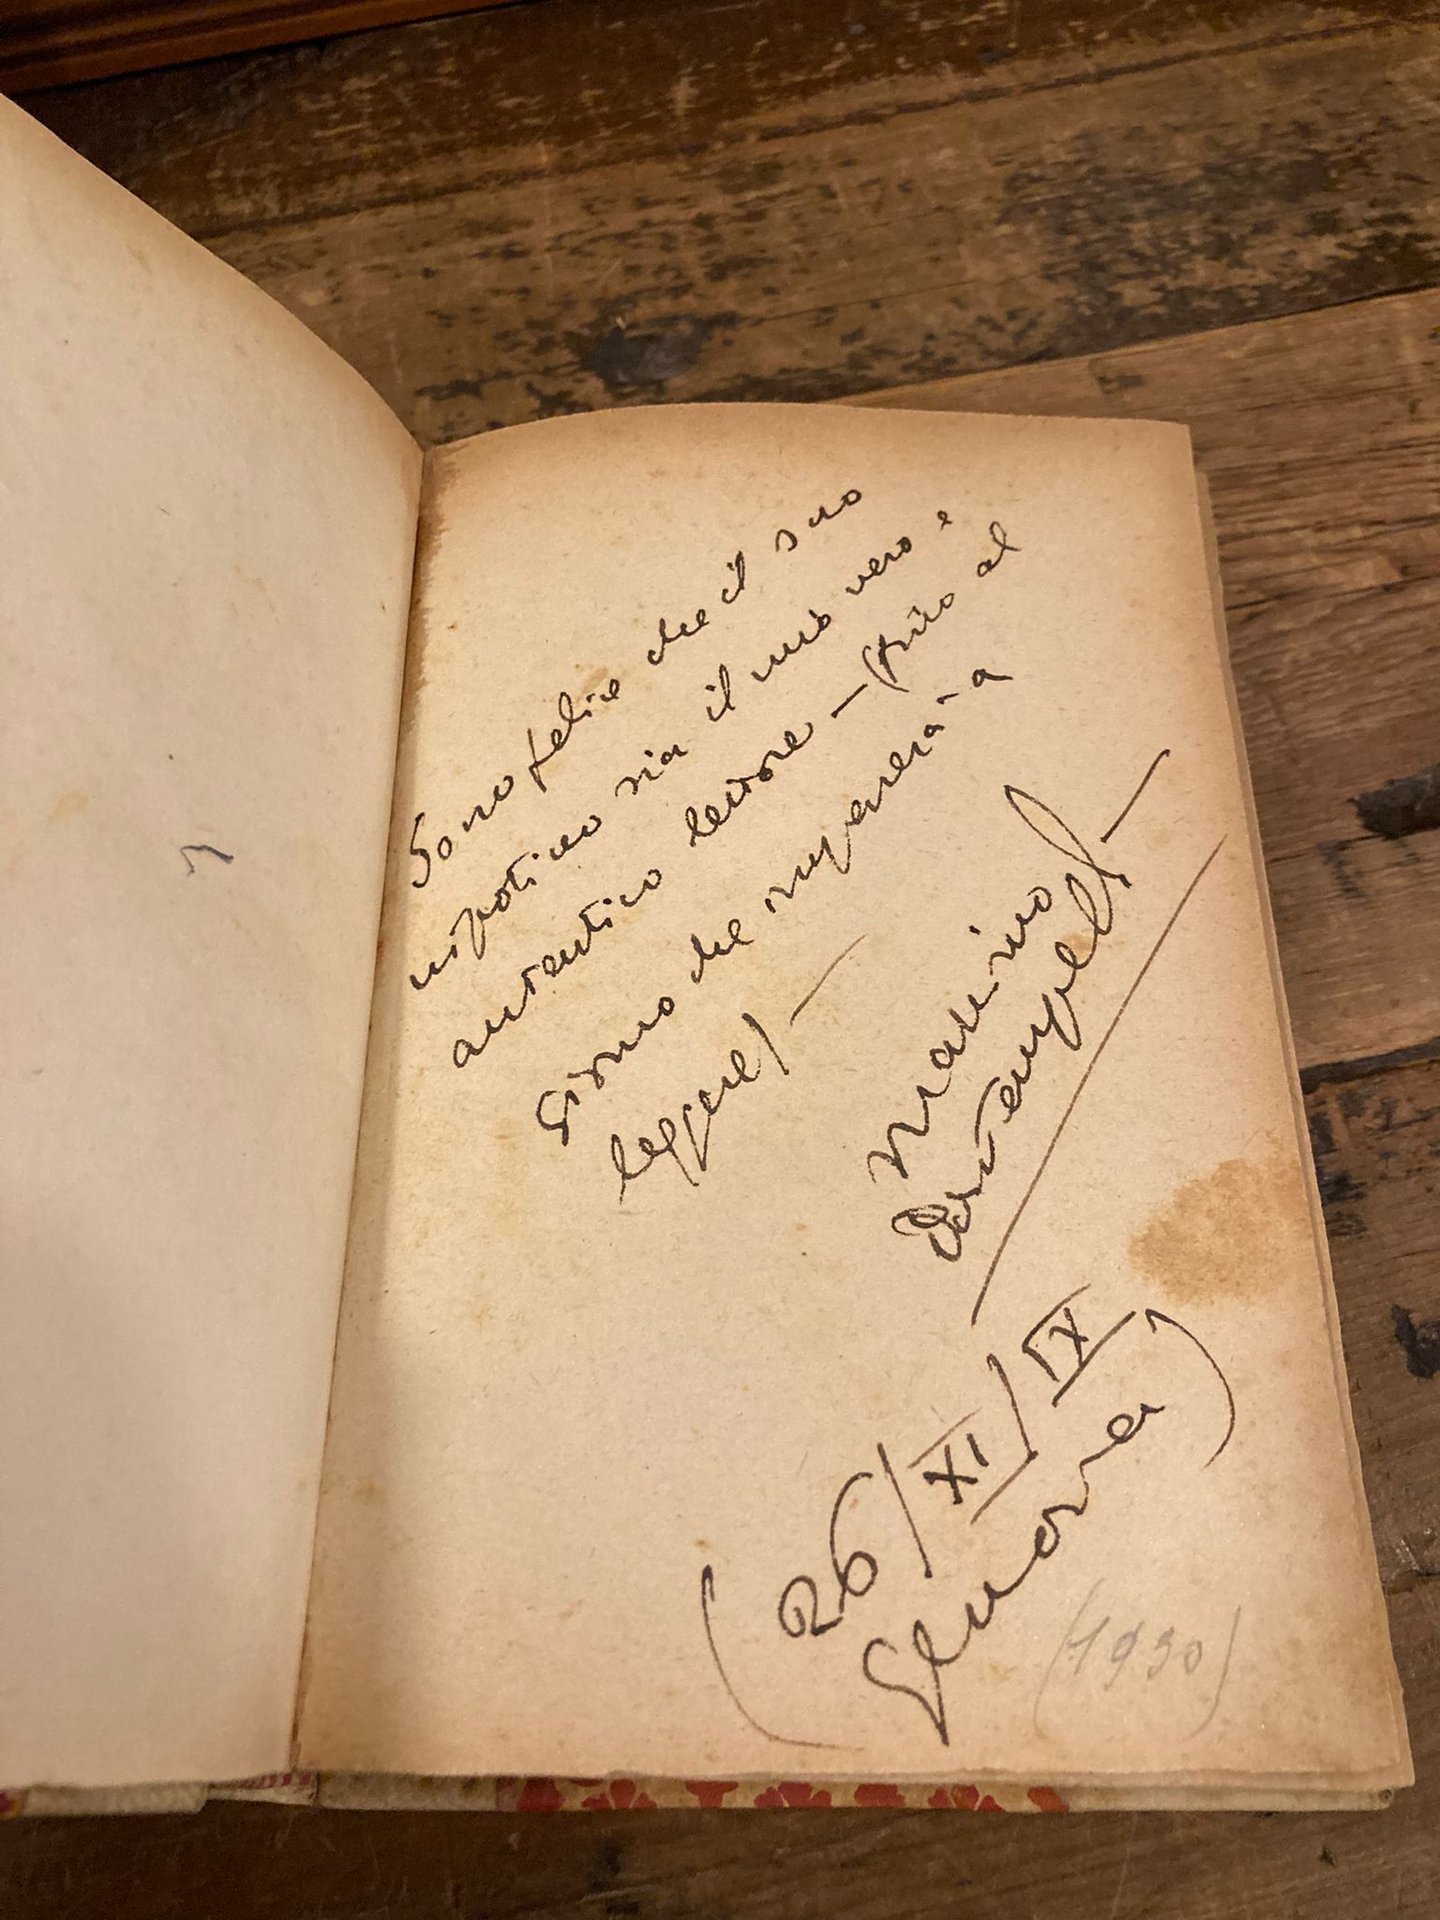 Sono felice che il suo
nipotino sia il mio vero e
autentico lettore — (fino al
giorno che imparerà a
leggere) —
26/XI/IX
Genova
(1930)